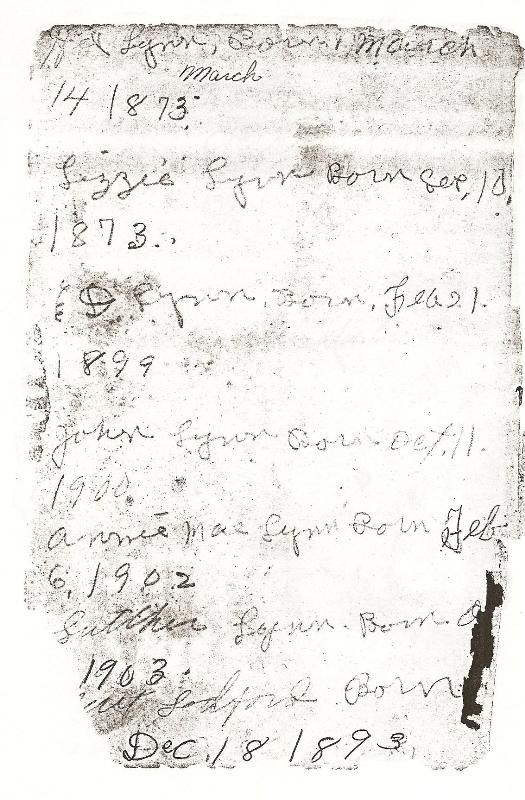 Lynn, Born, March
March
14 1873
Lizzie Lynn Born Sep, 10,
1873.
D Lynn, Born, Feb 21.
1899
John Lynn Born Oct. 11.
1900
Annie Mae Lynn Born Feb
6, 1902
Lynn. Born
1903.
Ledford Born
Dec, 18 1893,